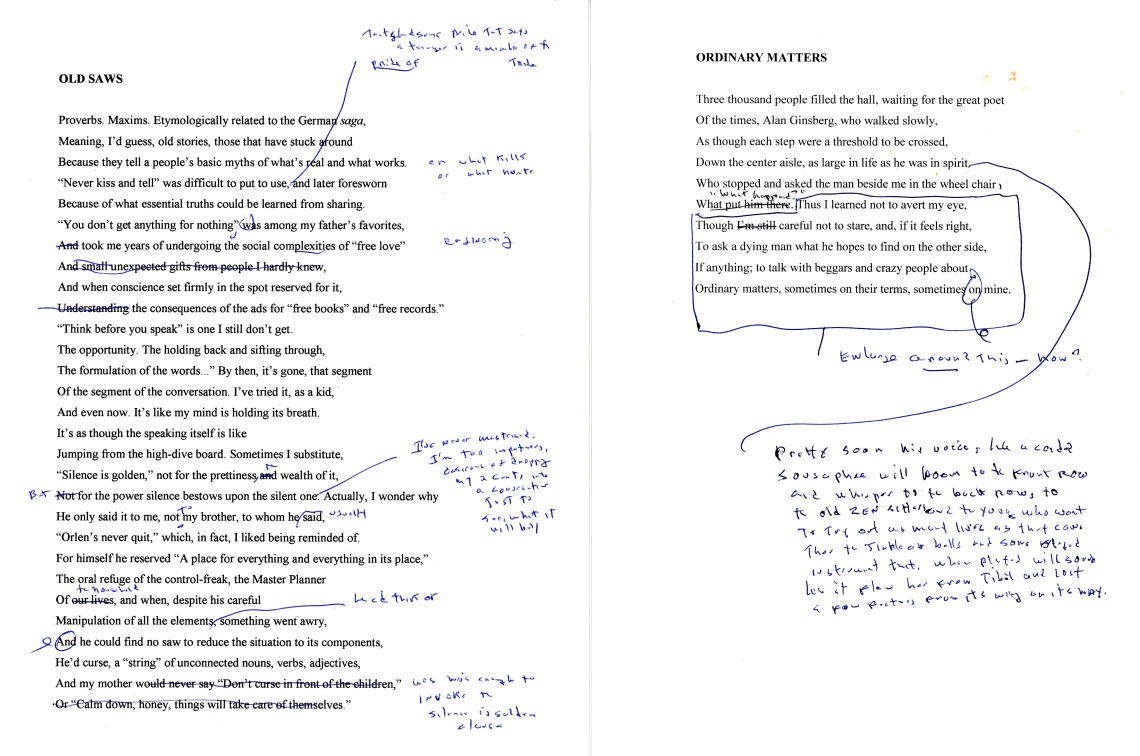 pride of
Tribe
OLD SAWS
Proverbs. Maxims. Etymologically related to the German saga,
Meaning, I'd guess, old stories, those that have stuck around
Because they tell a people's basic myths of what's real and what works.
or what kills
or what hurts
"Never kiss and tell" was difficult to put to use, and later foresworn
Because of what essential truths could be learned from sharing.
"You don't get anything for nothing" was among my father's favorites,
And took me years of undergoing the social complexities of "free love"
And small unexpected gifts from people I hardly knew,
And when conscience set firmly in the spot reserved for it,
Understanding the consequences of the ads for "free books" and "free records."
"Think before you speak" is one I still don't get.
The opportunity. The holding back and sifting through,
The formulation of the words..." By then, it's gone, that segment
Of the segment of the conversation. I've tried it, as a kid,
And even now. It's like my mind is holding its breath.
It's as though the speaking itself is like
Jumping from the high-dive board. Sometimes I substitute,
"Silence is golden," not for the prettiness, and wealth of it,
I've never mastered.
I'm too impetuous,
desirous of dropping
my 2 cents into
a conversation
just to
see what it
will buy
But Not for the power silence bestows upon the silent one. Actually, I wonder why
He only said it to me, not to my brother, to whom he said, usually
"Orlen's never quit," which, in fact, I liked being reminded of.
For himself he reserved "A place for everything and everything in its place,"
The oral refuge of the control-freak, the Master Planner
the household
Of our lives, and when, despite his careful
Manipulation of all the elements, something went awry,
And he could find no saw to reduce the situation to its components,
He'd curse, a "string" of unconnected nouns, verbs, adjectives,
And my mother would never say "Don't curse in front of the children,"
Or "Calm down, honey, things will take care of themselves."
was wise enough to
invoke the
silence is golden
clause
ORDINARY MATTERS
Three thousand people filled the hall, waiting for the great poet
Of the times, Alan Ginsberg, who walked slowly,
As though each step were a threshold to be crossed,
Down the center aisle, as large in life as he was in spirit,
Who stopped and asked the man beside me in the wheel chair,
"What happened?"
What put him there. Thus I learned not to avert my eye,
Though I'm still careful not to stare, and, if it feels right,
To ask a dying man what he hopes to find on the other side,
If anything; to talk with beggars and crazy people about
Ordinary matters, sometimes on their terms, sometimes on mine.
Enlarge around this — how?
Pretty soon his voice, like a
will boom to the front row
and whisper to the back rows, to
the old and the young who want
to try out as many lives as they can.
instrument that, when played will sound
like it flew here from Tibet and lost
a few feathers from its wing on its way.